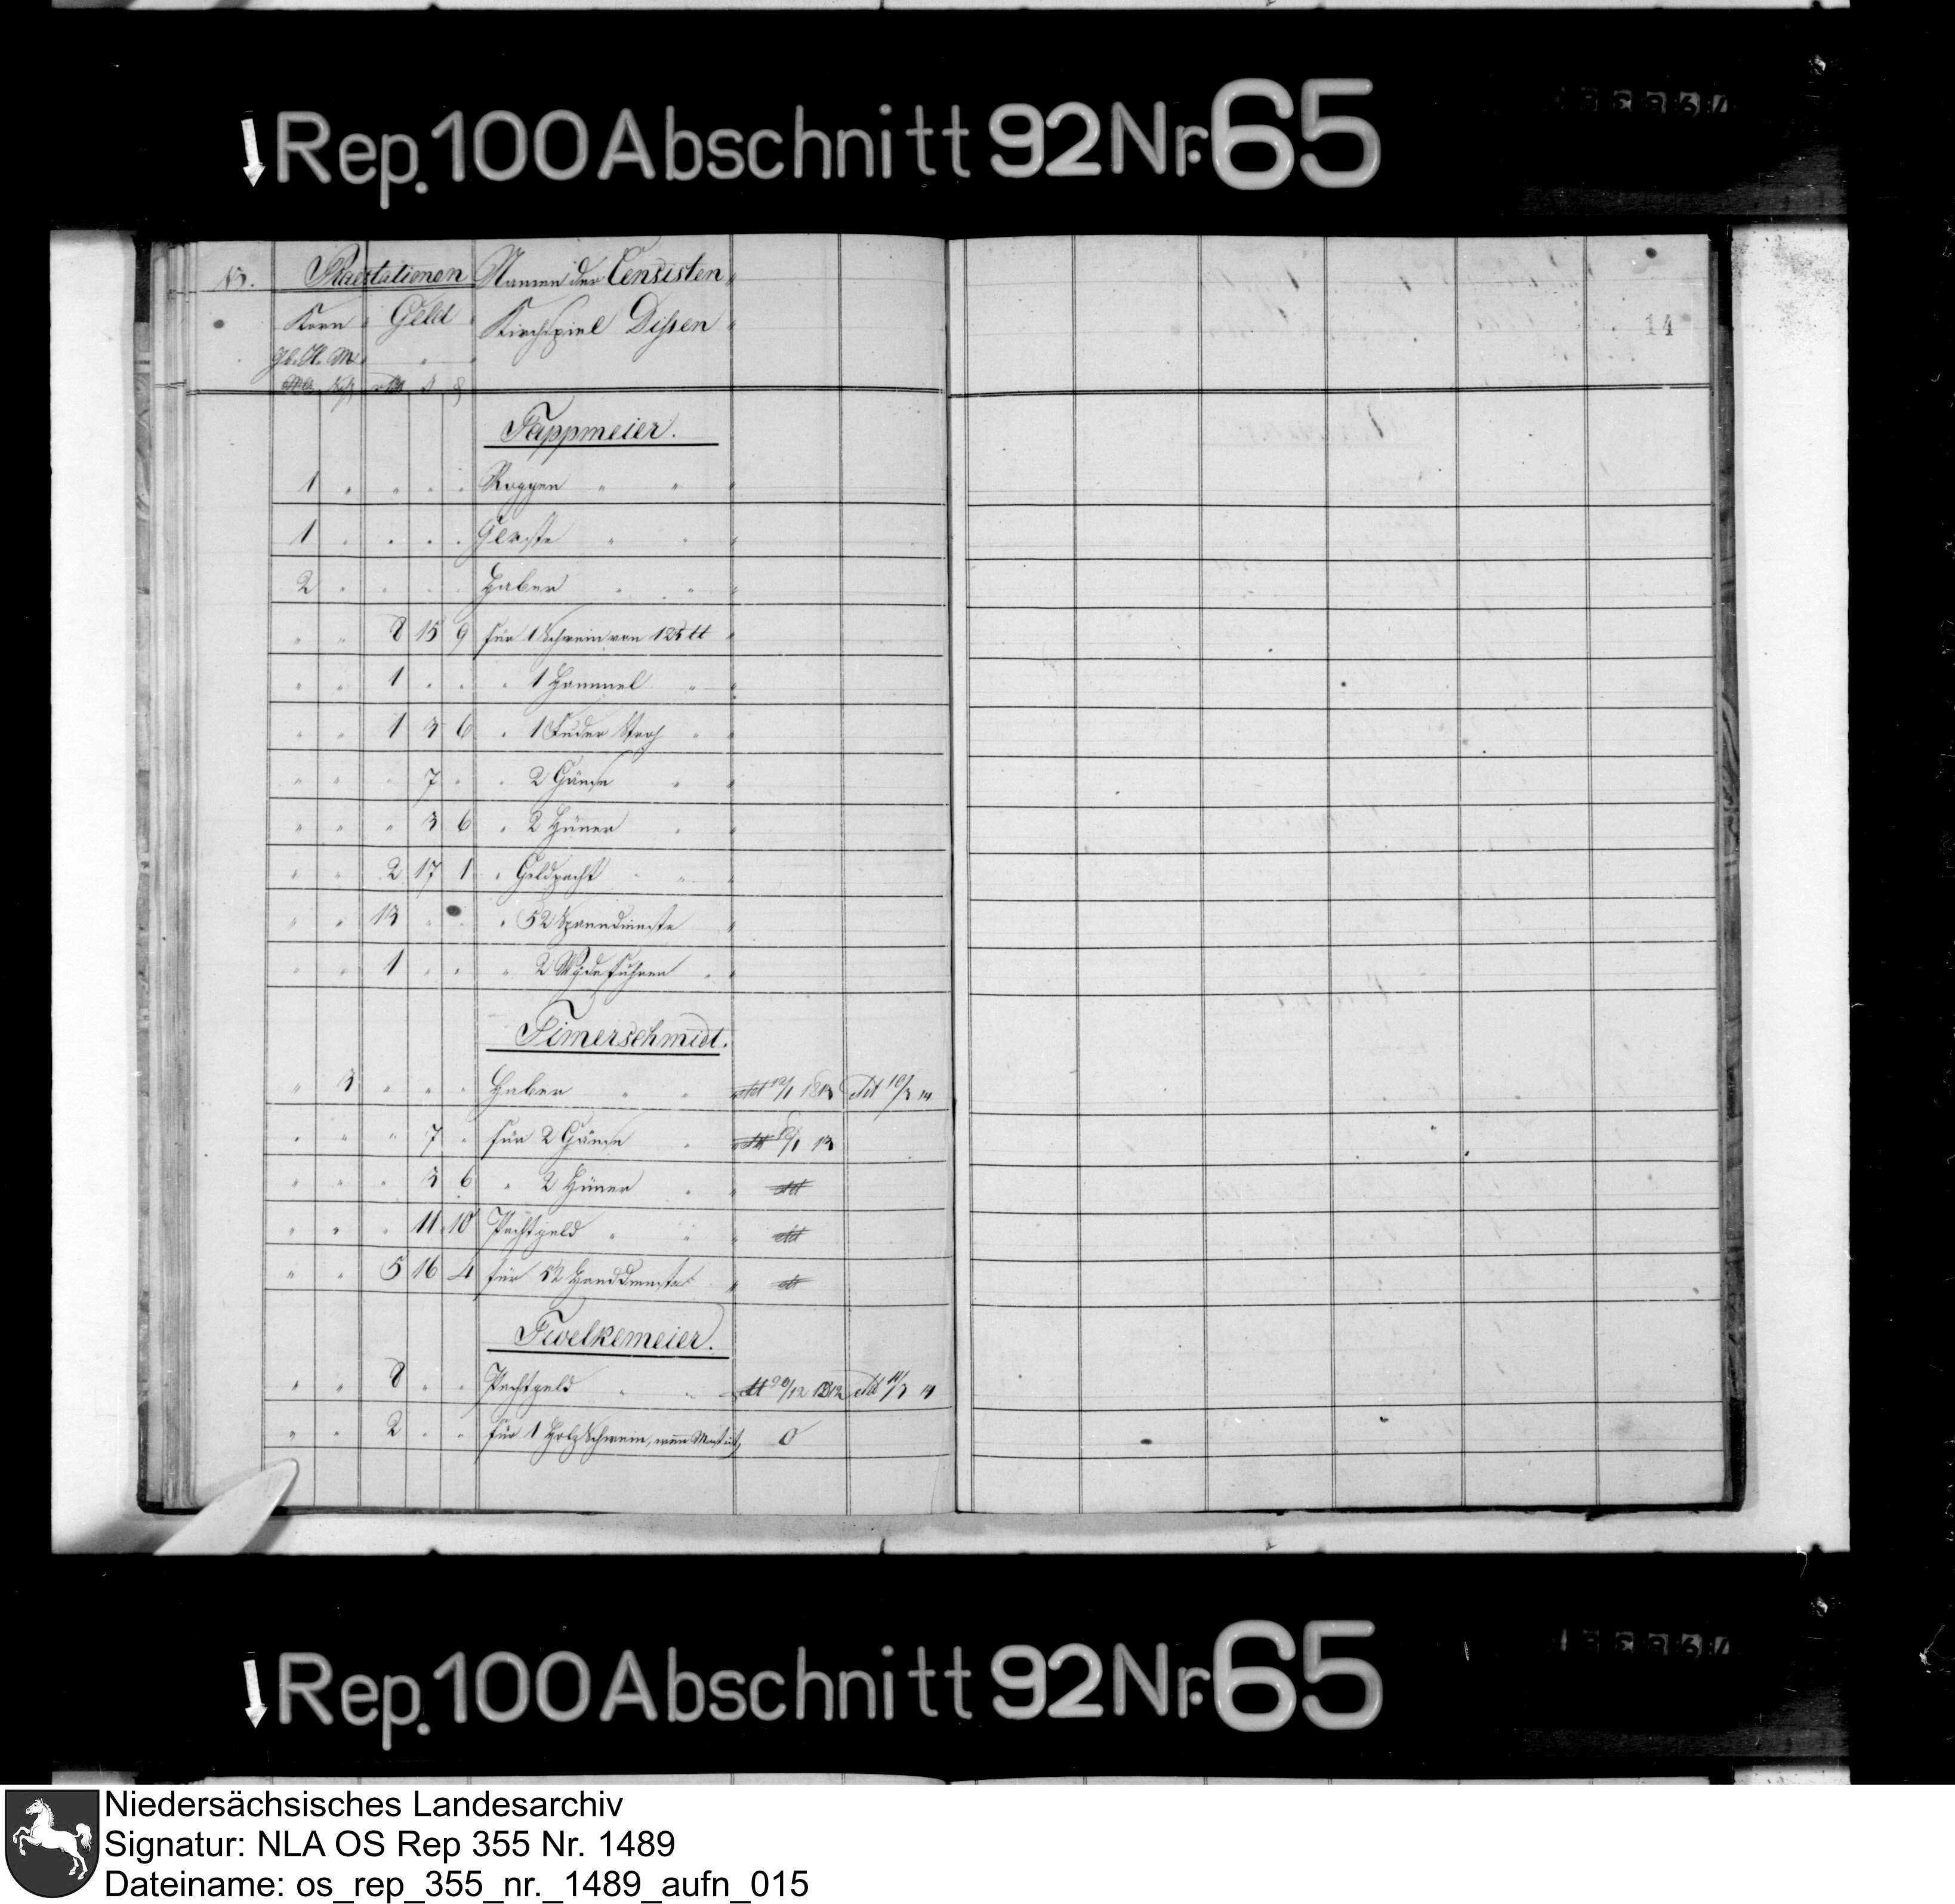 Rep. 100 Abschnitt 92 Nr. 65
N. Praestationen Namen der Censisten
Korn Geld Kirchspiel Dißen
14
Tappmeier.
1 Roggen
1 Gerste
2 Haber
8 15 9 für 1 Schwein von 125 tt
1 " 1 Hammel
1 3 6 " 1 Fuder Stroh
7 " 2 Gänse
3 6 " 2 Hüner
2 17 1 " Geldpacht
13 " 52 Spanndienste
1 " 2
Timerschmidt.
3 Haber 12/1 1813 10/3 14
7 für 2 Gänse 12/1 13
3 6 " 2 Hüner
11 10 Pachtgeld
5 16 4 für 52 Handdienste
Twelkemeier.
8 Pachtgeld 20/12 1812 11/3 14
2 für 1 Holzschwein, wenn Mast ist, 0
Rep. 100 Abschnitt 92 Nr. 65
Niedersächsisches Landesarchiv
Signatur: NLA OS Rep 355 Nr. 1489
Dateiname: os_rep_355_nr._1489_aufn_015